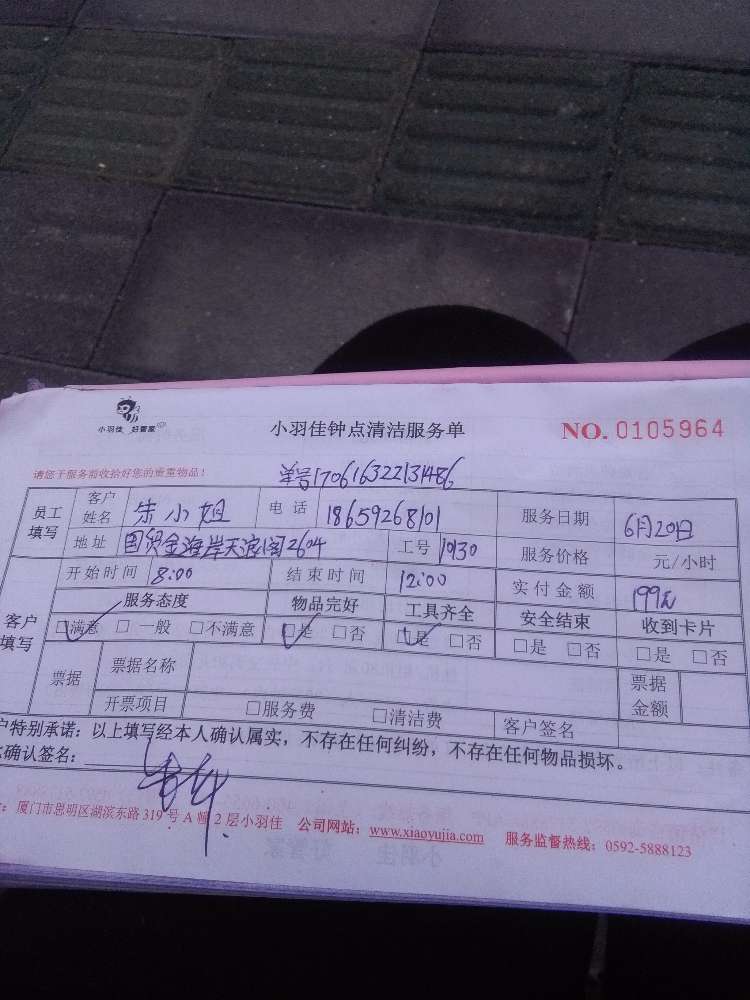 小羽佳 好管家
小羽佳钟点清洁服务单
NO. 0105964
请您于服务前收拾好您的贵重物品!
单号170616322131486
员工填写 客户姓名 朱小姐 电话 18659268101 服务日期 6月20日
地址 国贸金海岸天浪阁2604 工号 1930 服务价格 元/小时
客户填写 开始时间 8:00 结束时间 12:00 实付金额 199元
服务态度 物品完好 工具齐全 安全结束 收到卡片
☑满意 □一般 □不满意 ☑是 □否 ☑是 □否 □是 □否 □是 □否
票据 票据名称 票据金额
开票项目 □服务费 □清洁费 客户签名
户特别承诺:以上填写经本人确认属实,不存在任何纠纷,不存在任何物品损坏。
确认签名:
厦门市思明区湖滨东路 319 号 A 幢 2 层小羽佳 公司网站:www.xiaoyujia.com 服务监督热线:0592-5888123